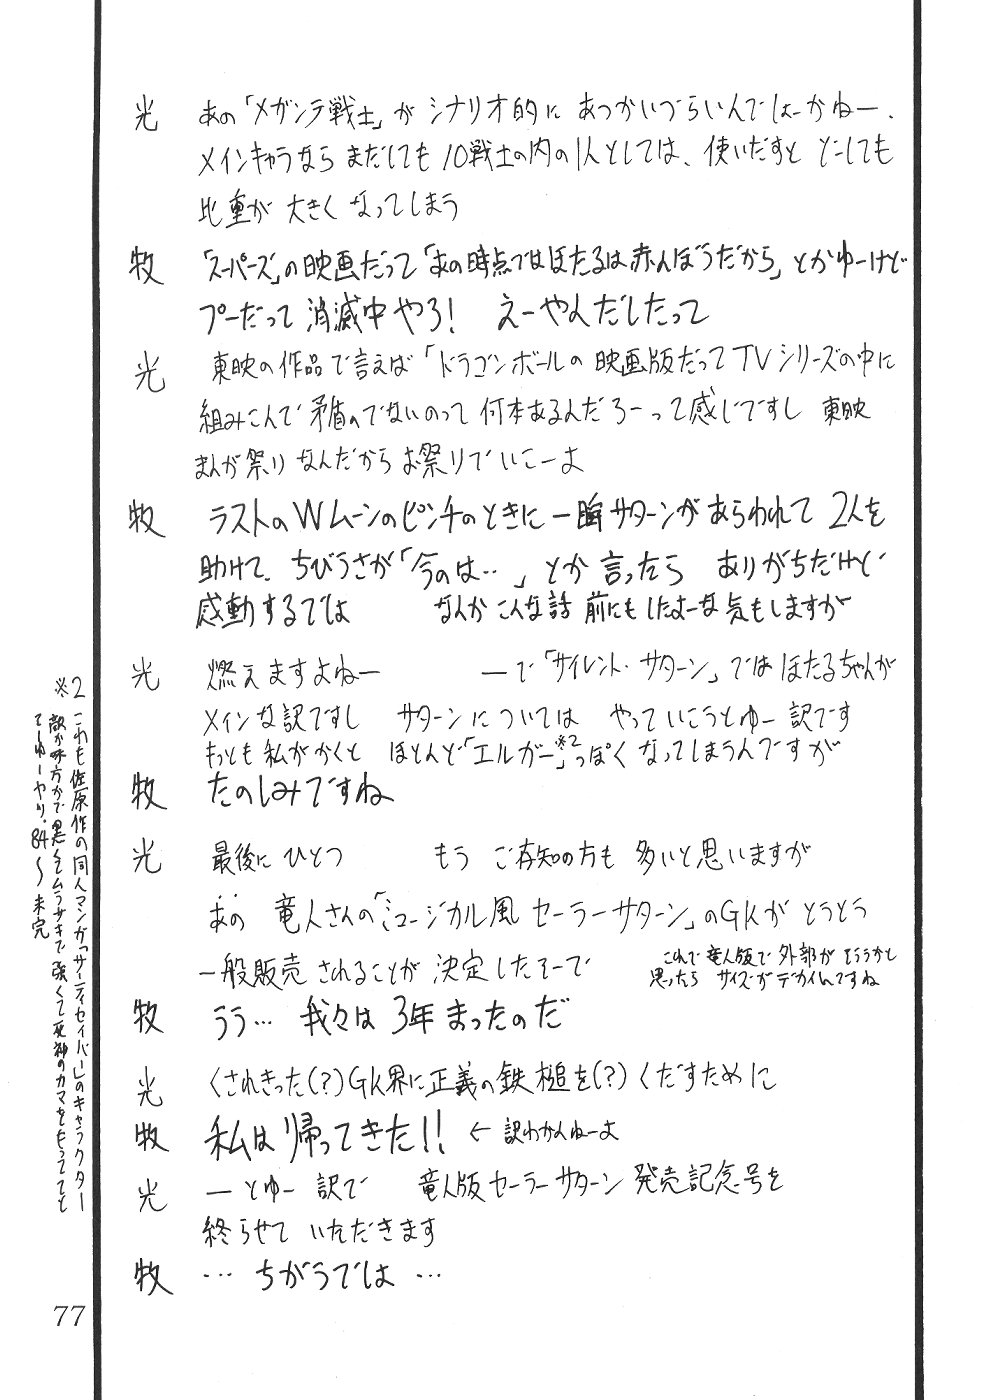 光 あの「メガンテ戦士」が シナリオ的に あつかいづらいんでしょーかねー、
メインキャラなら まだしても 10戦士の内の1人としては、使いだすと どーしても
比重が 大きく なってしまう
牧 「スーパーズ」の映画だって「あの時点ではほたるは赤んぼうだから」とかゆーけど
プーだって 消滅中やろ! えーやんだしたって
光 東映の作品で言えば「ドラゴンボールの 映画版だってTVシリーズの中に
組みこんで矛盾のでないのって 何本あるんだろーって感じですし 東映
まんが祭りなんだからお祭りでいこーよ
牧 ラストのWムーンのピンチのときに一瞬サターンがあらわれて 2人を
助けて、ちびうさが「今のは‥」とか 言ったら ありがちだけど
感動するでは なんか こんな話 前にもしたよーな気もしますが
光 燃えますよねー ーで「サイレント・サターン」では ほたるちゃんが
メインな訳ですし サターンについては やっていこうとゆー訳です
もっとも私がかくと ほとんど「エルガー」※2っぽくなってしまうんですが
牧 たのしみですね
光 最後に ひとつ もう ご存知の方も 多いと思いますが
あの 竜人さんの「ミュージカル風 セーラーサターン」のGKが とうとう
一般販売 されることが 決定したそーで これで竜人版で 外部がそろうかと
思ったら サイズがデカイんですね
牧 うう… 我々は 3年まったのだ
光 くされきった(?)GK界に正義の鉄槌を(?)くだすために
牧 私は帰ってきた!! ← 訳わかんねーよ
光 ーとゆー 訳で 竜人版セーラーサターン 発売記念号を
終らせて いただきます
牧 … ちがうでは …
※2 これも佐原作の同人マンガ「サイティセイバー」のキャラクター
敵か味方かで黒くてムラサキで強くて死神のカマをもっててと
てーゆーヤツ。84〜未完
77